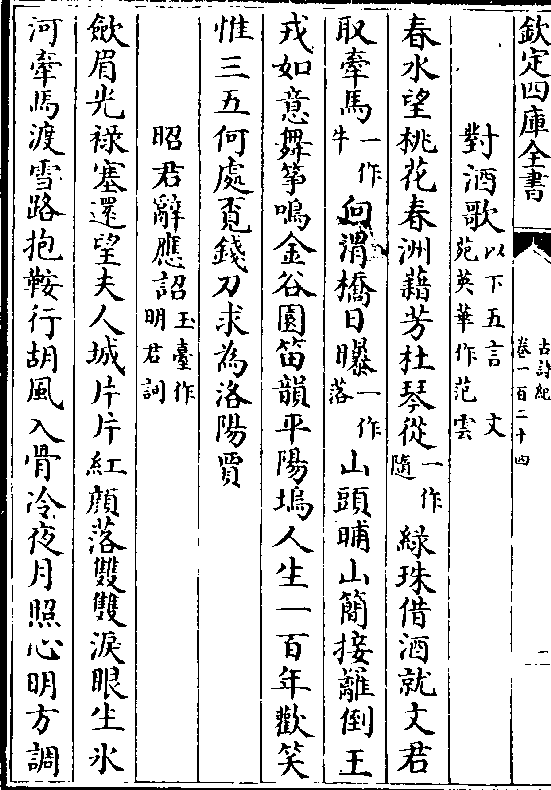 欽定四庫全書
古詩紀
卷一百二十四
一
對酒歌以下五言 文苑英華作范雲
春水望桃花春洲藉芳杜琴從一作隨綠珠借酒就文君
取牽馬一作牛向渭橋日曝一作落山頭晡山簡接䍦倒王
戎如意舞箏鳴金谷園笛韻平陽塢人生一百年歡笑
惟三五何處覓錢刀求為洛陽賈
昭君辭應詔玉臺作明君詞
歛眉光祿塞還望夫人城片片紅顔落雙雙淚眼生氷
河牽馬渡雪路抱鞍行胡風入骨冷夜月照心明方調